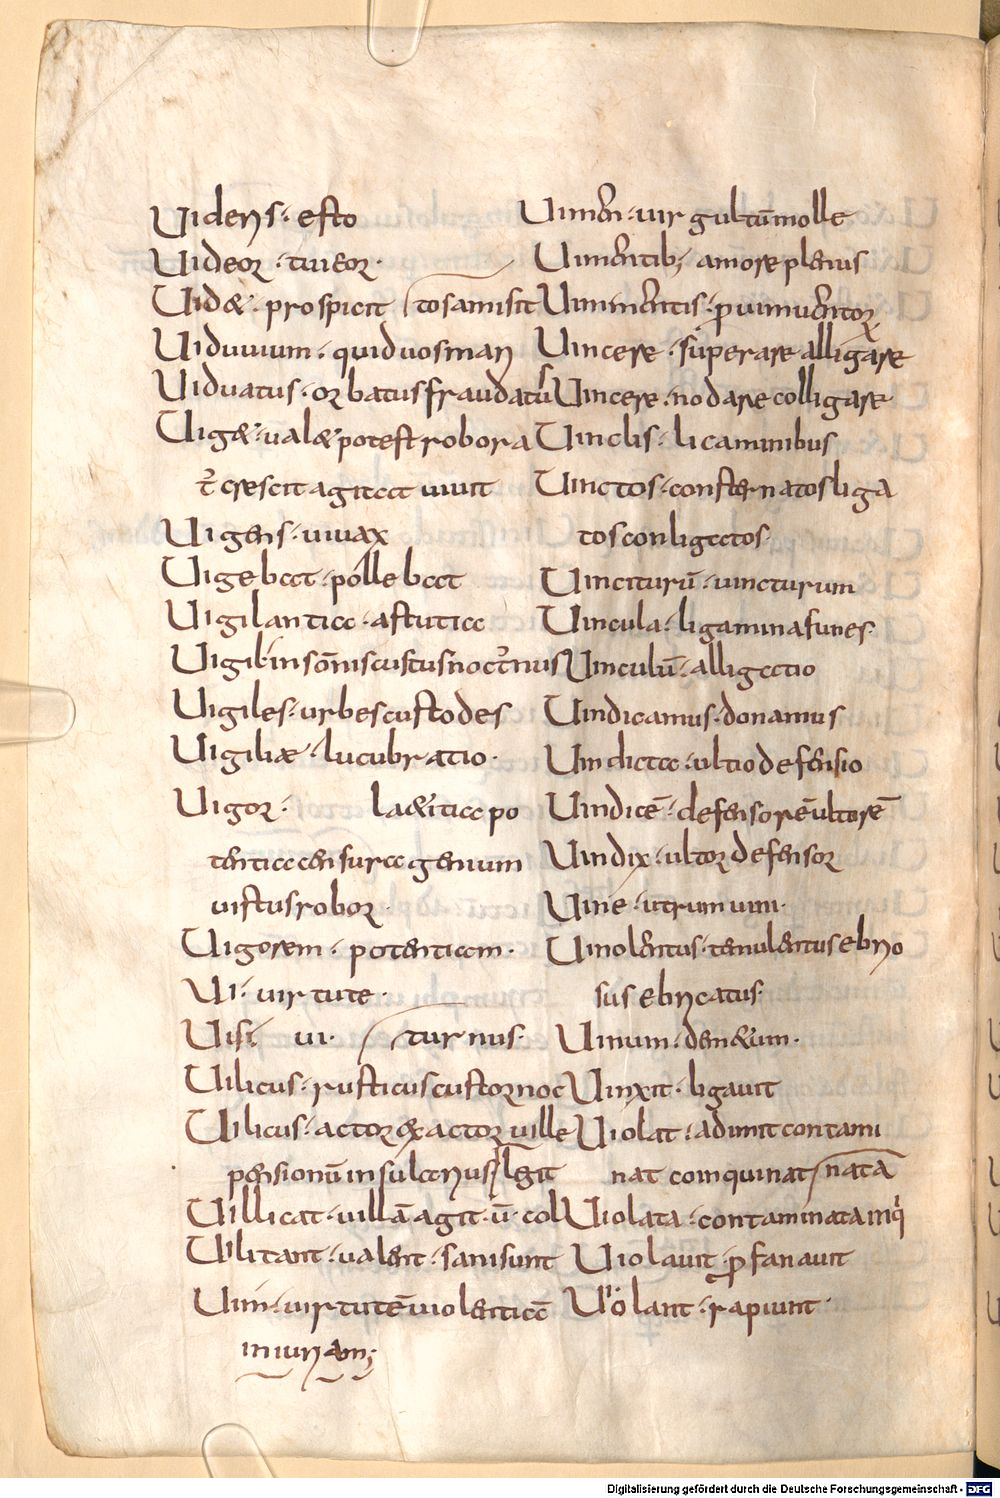 Uidens · esto
Uideor · tuieor ·
Uidet · prospicit tosamisit
Uiduuium · quid uos man
Uiduatus · orbatus fraudatus
Uiget · ualet potest robora
t̄ crescit agitat uiuit
Uigens · uiuax
Uigebat · pollebat
Uigilantia · astutia
Uigil · in som̄nis custus noct̄nus
Uigiles · urbes custodes
Uigiliae · lucubratio ·
Uigor · laetitia po
tentia censura genium
uistus robor
Uigorem · potentiam ·
Ui · uirtute ·
Uisi ui · turnus ·
Uilicus · rusticus custor noc
Uilicus · actor exactor uille
pensionū insultenus legit
Uillicat · uillā agit · ū · col
Uilitant · ualent · sani sunt
Uim · uirtutē uiolentiā
iniuriam;
Uimen · uirgultū molle
Uimentib; amore plenis
Uimmentis · ꝓ uimuentorx
Uincere · superare alligare
Uincere · nodare colligare
Uinclis · licaminibus
Uinctos · consternatos liga
tos conligatos ·
Uinciturū · uincturum
Uincula · ligamina funes ·
Uinculū · alligatio
Uindicamus · donamus
Uindicta · ultio defensio
Uindicē · defensorē ultorē
Uindix · ultor defensor
Uine · utrum uini ·
Uinolentus · temulentus ebrio
sus ebricatus ·
Uinum · denetum ·
Uinxit · ligauit
Uiolat · adimit contami
nat coinquinat natā
Uiolata · contaminata inqi
Uiolauit · ꝓfanauit
Uiolant · rapiunt ·
Digitalisierung gefördert durch die Deutsche Forschungsgemeinschaft - DFG